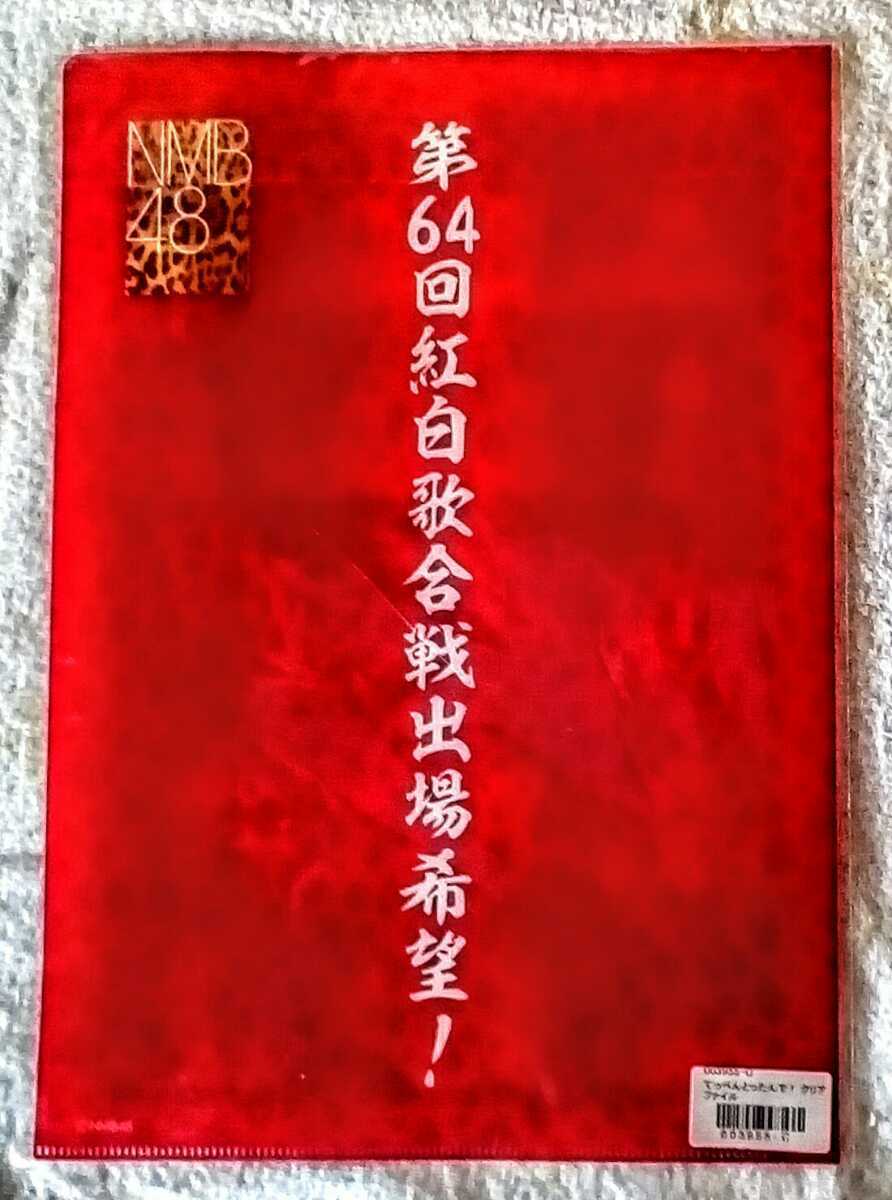 NMB
48
第64回紅白歌合戦出場希望！
003958-C
てっぺんとったんで！ クリア
ファイル
003958-C